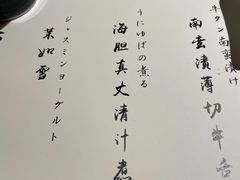 牛タン南蛮漬け
南蛮漬薄切牛舌
うにゆばの煮る
海胆真丈清汁煮
ジャスミンヨーグルト
茉如雪